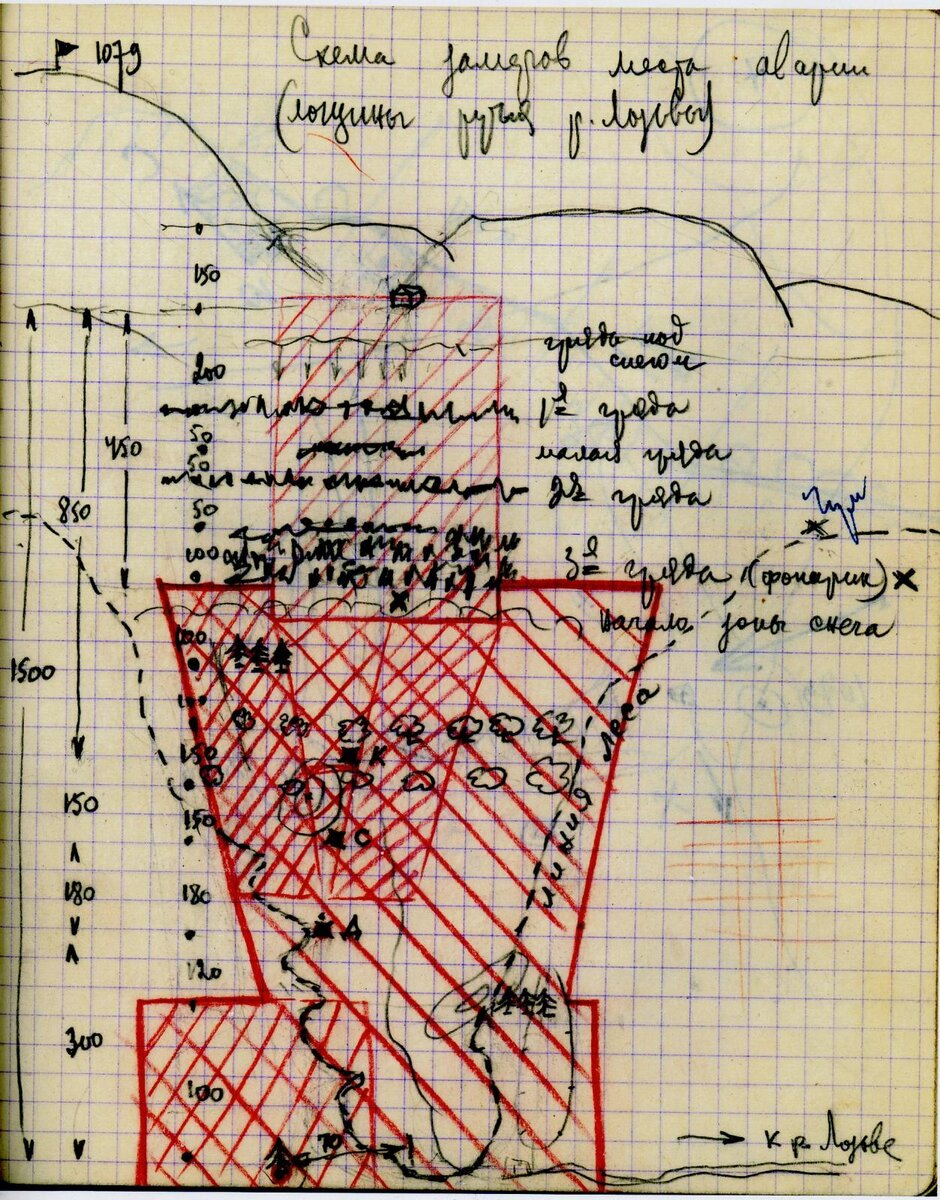 1079
Схема замеров места аварии
(лощины ручья р. Лозьвы)
150
гряда под
снегом
200
1я гряда
50
450
малая гряда
50
2я гряда
850
50
Чум
100
3я гряда, (фонарик) ×
Начало зоны снега
100
1500
100
линия леса
150
К
150
150
С
180
180
Д
120
300
100
70
к р. Лозьве